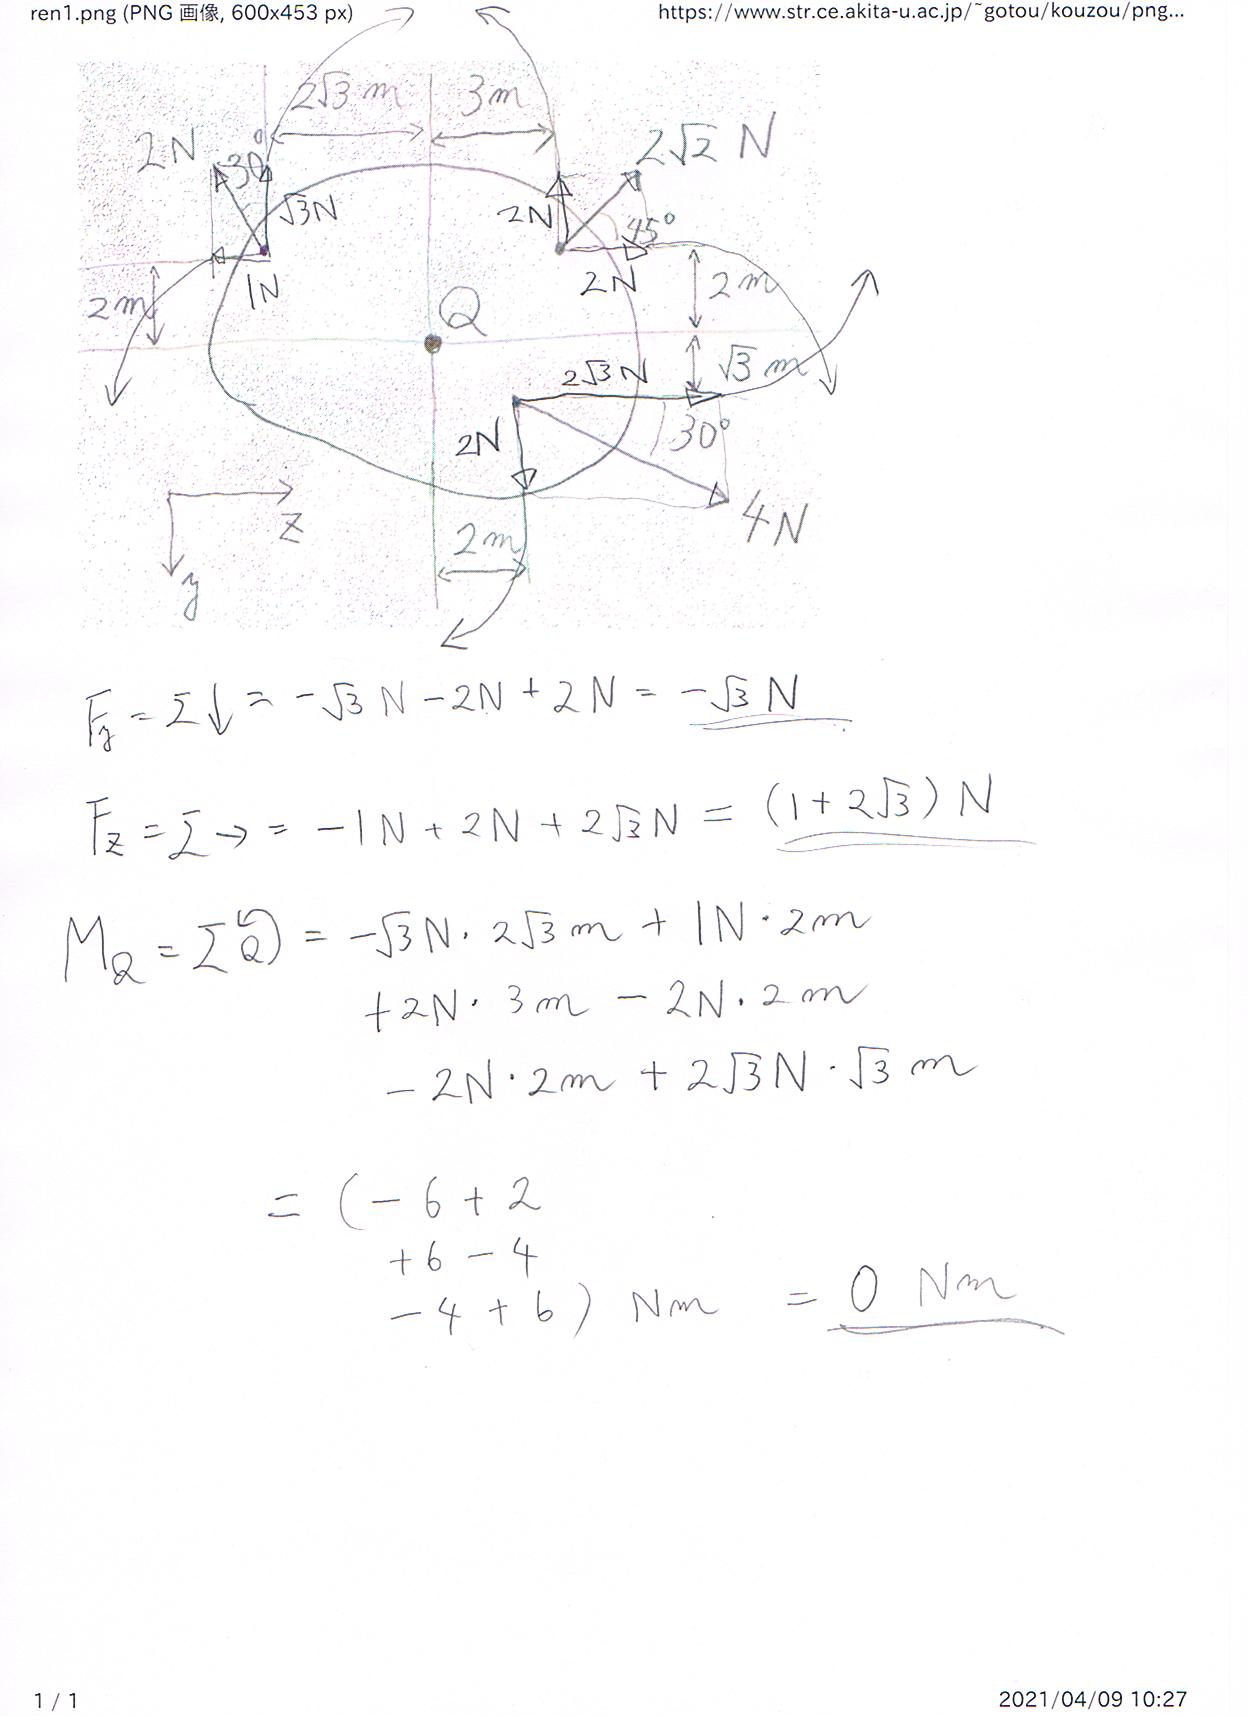 ren1.png (PNG 画像, 600x453 px)
https://www.str.ce.akita-u.ac.jp/~gotou/kouzou/png...
2√3 m
3m
2N
30°
√3N
2√2 N
2N
45°
1N
2N
2m
2m
Q
2√3 N
√3 m
2N
30°
4N
z
2m
y
Fy = Σ↓ = -√3 N - 2N + 2N = -√3 N
Fz = Σ→ = -1N + 2N + 2√3N = (1+2√3) N
MQ = ΣQ) = -√3N・2√3m + 1N・2m
+2N・3m - 2N・2m
-2N・2m + 2√3N・√3m
= (-6+2
+6-4
-4+6) Nm = 0 Nm
1 / 1
2021/04/09 10:27